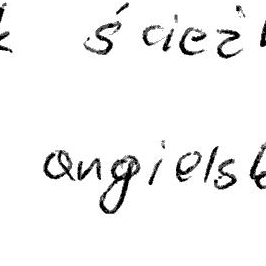 k ścież
angielsk